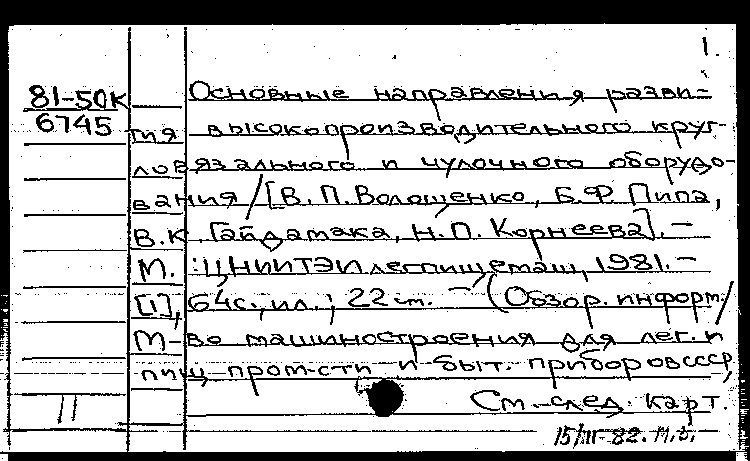 1.
81-50К
6745
Основные направления разви-
тия высокопроизводительного круг-
ловязального и чулочного оборудо-
вания / [В. П. Волощенко, Б. Ф. Пипа,
В. К. Гайдамака, Н. П. Корнеева]. -
М. : ЦНИИТЭИлегпищемаш, 1981. -
[1], 64с., ил. ; 22 см. - (Обзор. информ. /
М-во машиностроения для лег. и
пищ. пром-сти и быт. приборов СССР,
11
См. след. карт.
15/III-82.